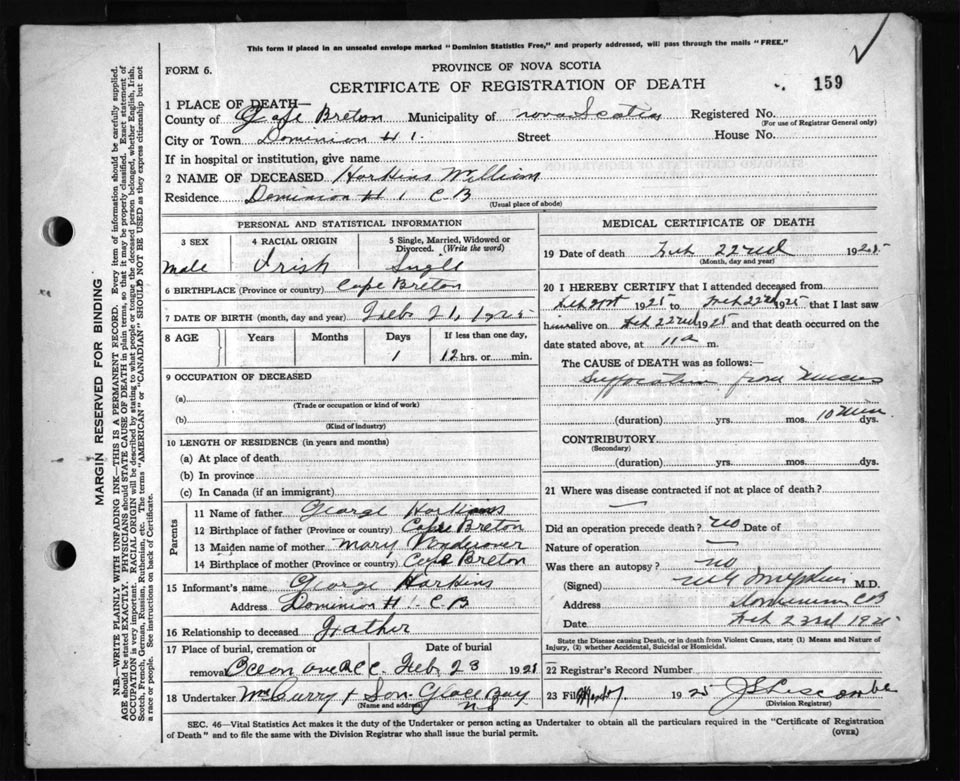 This form if placed in an unsealed envelope marked "Dominion Statistics Free," and properly addressed, will pass through the mails "FREE."
FORM 6.
PROVINCE OF NOVA SCOTIA
CERTIFICATE OF REGISTRATION OF DEATH
159
MARGIN RESERVED FOR BINDING
N.B.—WRITE PLAINLY WITH UNFADING INK—THIS IS A PERMANENT RECORD. Every item of information should be carefully supplied.
AGE should be stated EXACTLY. PHYSICIANS should STATE CAUSE OF DEATH in plain terms, so that it may be properly classified. Exact statement of
OCCUPATION is very important. RACIAL ORIGIN will be described by stating to what people or tongue the deceased person belonged, whether English, Irish,
Scotch, French, German, Russian, Ruthenian, etc. The terms "AMERICAN" or "CANADIAN" SHOULD NOT BE USED as they express citizenship but not
a race or people. See instructions on back of Certificate.
1 PLACE OF DEATH—
County of Cape Breton Municipality of Nova Scotia Registered No.
(For use of Registrar General only)
City or Town Dominion # 1. Street House No.
If in hospital or institution, give name
2 NAME OF DECEASED Harkins William
Residence Dominion # 1 C B
(Usual place of abode)
PERSONAL AND STATISTICAL INFORMATION
3 SEX 4 RACIAL ORIGIN 5 Single, Married, Widowed or Divorced. (Write the word)
Male Irish Single
6 BIRTHPLACE (Province or country) Cape Breton
7 DATE OF BIRTH (month, day and year) Feb 21, 1925
8 AGE Years Months Days If less than one day,
1 12 hrs. or min.
9 OCCUPATION OF DECEASED
(a)
(Trade or occupation or kind of work)
(b)
(Kind of industry)
10 LENGTH OF RESIDENCE (in years and months)
(a) At place of death
(b) In province
(c) In Canada (if an immigrant)
Parents
11 Name of father George Harkins
12 Birthplace of father (Province or country) Cape Breton
13 Maiden name of mother Mary
14 Birthplace of mother (Province or country) Cape Breton
15 Informant's name George Harkins
Address Dominion # 1. C B
16 Relationship to deceased Father
17 Place of burial, cremation or Date of burial
removal Feb 23 1925
18 Undertaker McCurry & Son Glace Bay
(Name and address) NS
MEDICAL CERTIFICATE OF DEATH
19 Date of death Feb 22nd 1925
(Month, day and year)
20 I HEREBY CERTIFY that I attended deceased from
Feb 21st 1925 to Feb 22nd 1925 that I last saw
him alive on Feb 22nd 1925 and that death occurred on
date stated above, at 11 a m.
The CAUSE of DEATH was as follows:
Suffocation from Mucus
(duration) yrs. mos. 10 min dys.
CONTRIBUTORY
(Secondary)
(duration) yrs. mos. dys.
21 Where was disease contracted if not at place of death?
Did an operation precede death? no Date of
Nature of operation
Was there an autopsy? no
(Signed) M.D.
Address Dominion CB
Date Feb 23rd 1925
State the Disease causing Death, or in death from Violent Causes, state (1) Means and Nature of
Injury, (2) whether Accidental, Suicidal or Homicidal.
22 Registrar's Record Number
23 Filed 1925 J S Liscombe
(Division Registrar)
SEC. 46—Vital Statistics Act makes it the duty of the Undertaker or person acting as Undertaker to obtain all the particulars required in the "Certificate of Registration
of Death" and to file the same with the Division Registrar who shall issue the burial permit.
(OVER)